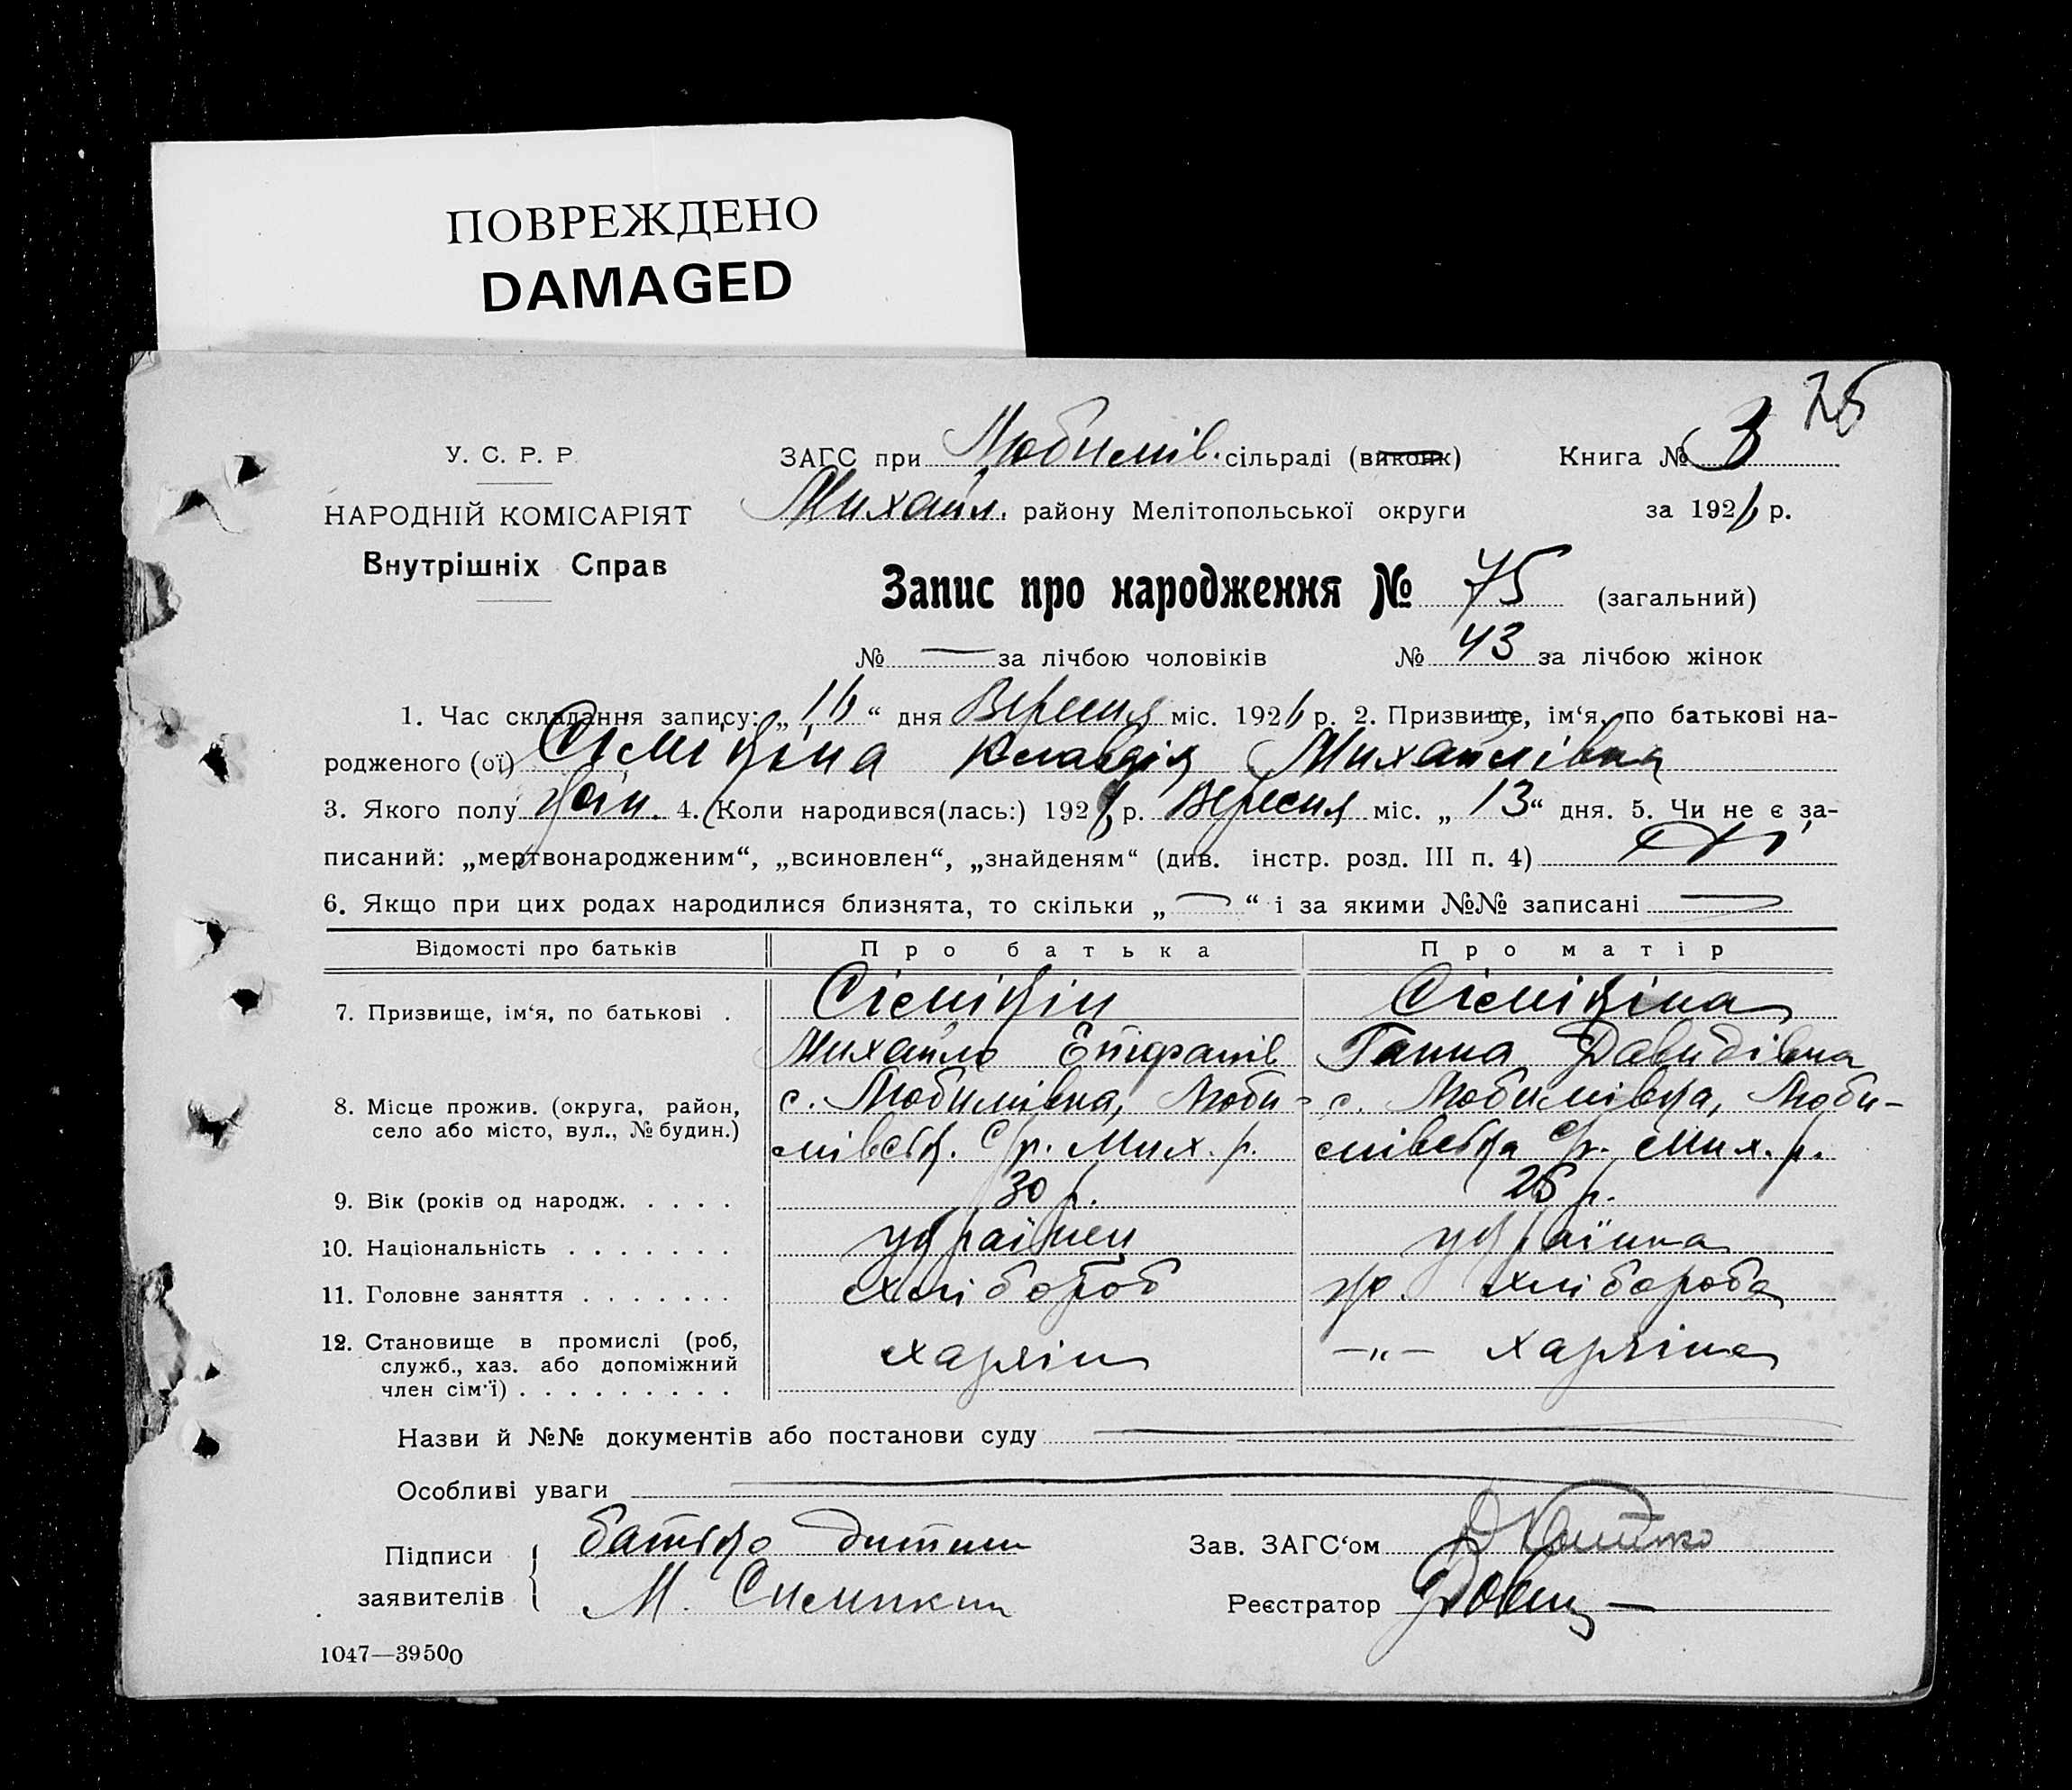 ПОВРЕЖДЕНО
DAMAGED
75
У. С. Р. Р.
НАРОДНІЙ КОМІСАРІЯТ
Внутрішніх Справ
ЗАГС при Любимів. сільраді (виконк)
Книга № 3
Михайл. району Мелітопольської округи
за 1926 р.
Запис про народження № 75 (загальний)
№ — за лічбою чоловіків № 43 за лічбою жінок
1. Час складання запису: „16“ дня Вересня міс. 1926 р. 2. Призвище, ім‘я, по батькові на-
родженого (ої) Клавдія Михайлівна
3. Якого полу жін. 4. Коли народився(лась:) 1926 р. Вересня міс. „13“ дня. 5. Чи не є за-
писаний: „мертвонародженим“, „всиновлен“, „знайденям“ (див. інстр. розд. III п. 4) Ні
6. Якщо при цих родах народилися близнята, то скільки „—“ і за якими №№ записані —
Відомості про батьків Про батька Про матір
7. Призвище, ім‘я, по батькові .
Михайло Епифанів Ганна Давидівна
8. Місце прожив. (округа, район, село або місто, вул., № будин.)
с. Любимівка, Люби- с. Любимівка, Люби-
мівськ. с/р. Мих. р. мівська с/р. Мих. р.
9. Вік (років од народж. . . . . 30 р. 26 р.
10. Національність . . . . . . . українец українка
11. Головне заняття . . . . . . . хлібороб хлібороба
12. Становище в промислі (роб,
служб., хаз. або допоміжний
член сім‘ї) . . . . . . . . .
хазяін —„— хазяіна
Назви й №№ документів або постанови суду —
Особливі уваги —
Підписи
заявителів
батько дитини
М. Симикин
Зав. ЗАГС‘ом
Реєстратор
1047—39500